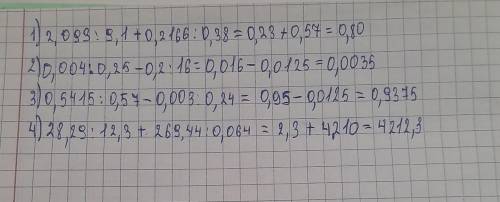 1) 2,093 : 9,1 + 0,2166 : 0,38 = 0,23 + 0,57 = 0,80
2) 0,004 : 0,25 - 0,2 : 16 = 0,016 - 0,0125 = 0,0035
3) 0,5415 : 0,57 - 0,003 : 0,24 = 0,95 - 0,0125 = 0,9375
4) 28,29 : 12,3 + 269,44 : 0,064 = 2,3 + 4210 = 4212,3